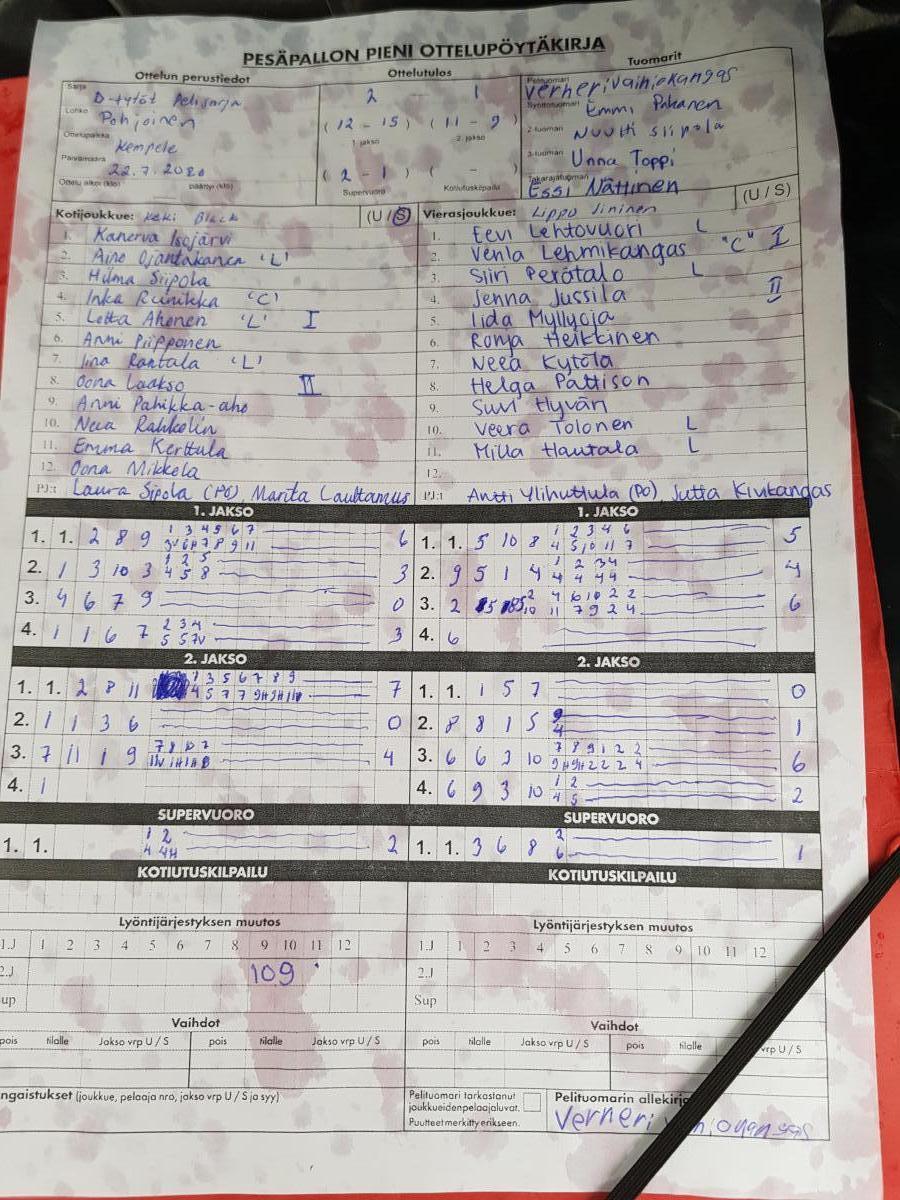 PESÄPALLON PIENI OTTELUPÖYTÄKIRJA
Ottelun perustiedot
Sarja D-tytöt Aluesarja
Lohko Pohjoinen
Ottelupaikka Kempele
Päivämäärä 22.7.2020
Ottelu alkoi (klo) päättyi (klo)
Ottelutulos
2 - 1
(12 - 15) (11 - 9)
1. jakso 2. jakso
(2 - 1) ( - )
Supervuoro Kotiutuskilpailu
Tuomarit
Pelituomari Verneri Vainiokangas
Syöttötuomari Emmi Pakanen
2-tuomari Nuutti Siipola
3-tuomari Unna Toppi
Takarajatuomari Essi Nättinen
Kotijoukkue: KeKi Black (U/S)
1. Kanerva Isojärvi
2. Aino Ojantakanen 'L'
3. Hilma Siipola
4. Inka Reinikka 'C'
5. Lotta Ahonen 'L' I
6. Anni Piipponen
7. Iina Rantala 'L'
8. Oona Laakso II
9. Anni Pahikka-aho
10. Neea Rahkolin
11. Emma Kerttula
12. Oona Mikkela
PJ:t Laura Sipola (PÖ), Marita Lauttamus
Vierasjoukkue: Lippo Jininen (U/S)
1. Eevi Lehtovuori L
2. Venla Lehmikangas "C" I
3. Siiri Perätalo L
4. Jenna Jussila II
5. Iida Myllyoja
6. Ronja Heikkinen
7. Neea Kytölä
8. Helga Pattison
9. Suvi Hyvän
10. Veera Tolonen L
11. Milla Hautala L
12.
PJ:t Antti Ylihuttula (PÖ), Jutta Kiukangas
1. JAKSO
1. 1. 2 8 9 1 3 4 5 6 7 6
2. 1 3 10 3 1 2 5 3
4 5 8
3. 4 6 7 9 0
4. 1 1 6 7 2 3 4 3
5 5 7V
1. JAKSO
1. 1. 5 10 8 1 2 3 4 6 5
4 5 10 11 7
2. 9 5 1 4 1 2 3 4 4
4 4 4 4
3. 2 4 6 10 2 2 6
11 7 9 2 4
4. 6
2. JAKSO
1. 1. 2 8 11 1 3 5 6 7 8 9 7
4 5 7 7 9H 9H 11V
2. 1 1 3 6 0
3. 7 11 1 9 7 8 10 7 4
4. 1
2. JAKSO
1. 1. 1 5 7 0
2. 8 8 1 5 9 1
4
3. 6 6 3 10 7 8 9 1 2 2 6
9H 9H 2 2 2 4
4. 6 9 3 10 1 2 2
4 5
SUPERVUORO
1. 1. 1 2 2
4 4H
SUPERVUORO
1. 1. 3 6 8 2 1
6
KOTIUTUSKILPAILU
KOTIUTUSKILPAILU
Lyöntijärjestyksen muutos
1.J 1 2 3 4 5 6 7 8 9 10 11 12
2.J 10 9
Sup
Lyöntijärjestyksen muutos
1.J 1 2 3 4 5 6 7 8 9 10 11 12
2.J
Sup
Vaihdot
pois tilalle Jakso vrp U / S pois tilalle Jakso vrp U / S
Vaihdot
pois tilalle Jakso vrp U / S pois tilalle vrp U / S
ngaistukset (joukkue, pelaaja nro, jakso vrp U / S ja syy)
Pelituomari tarkastanut
joukkueiden pelaajaluvat.
Puutteet merkitty erikseen.
Pelituomarin allekirjo
Verneri